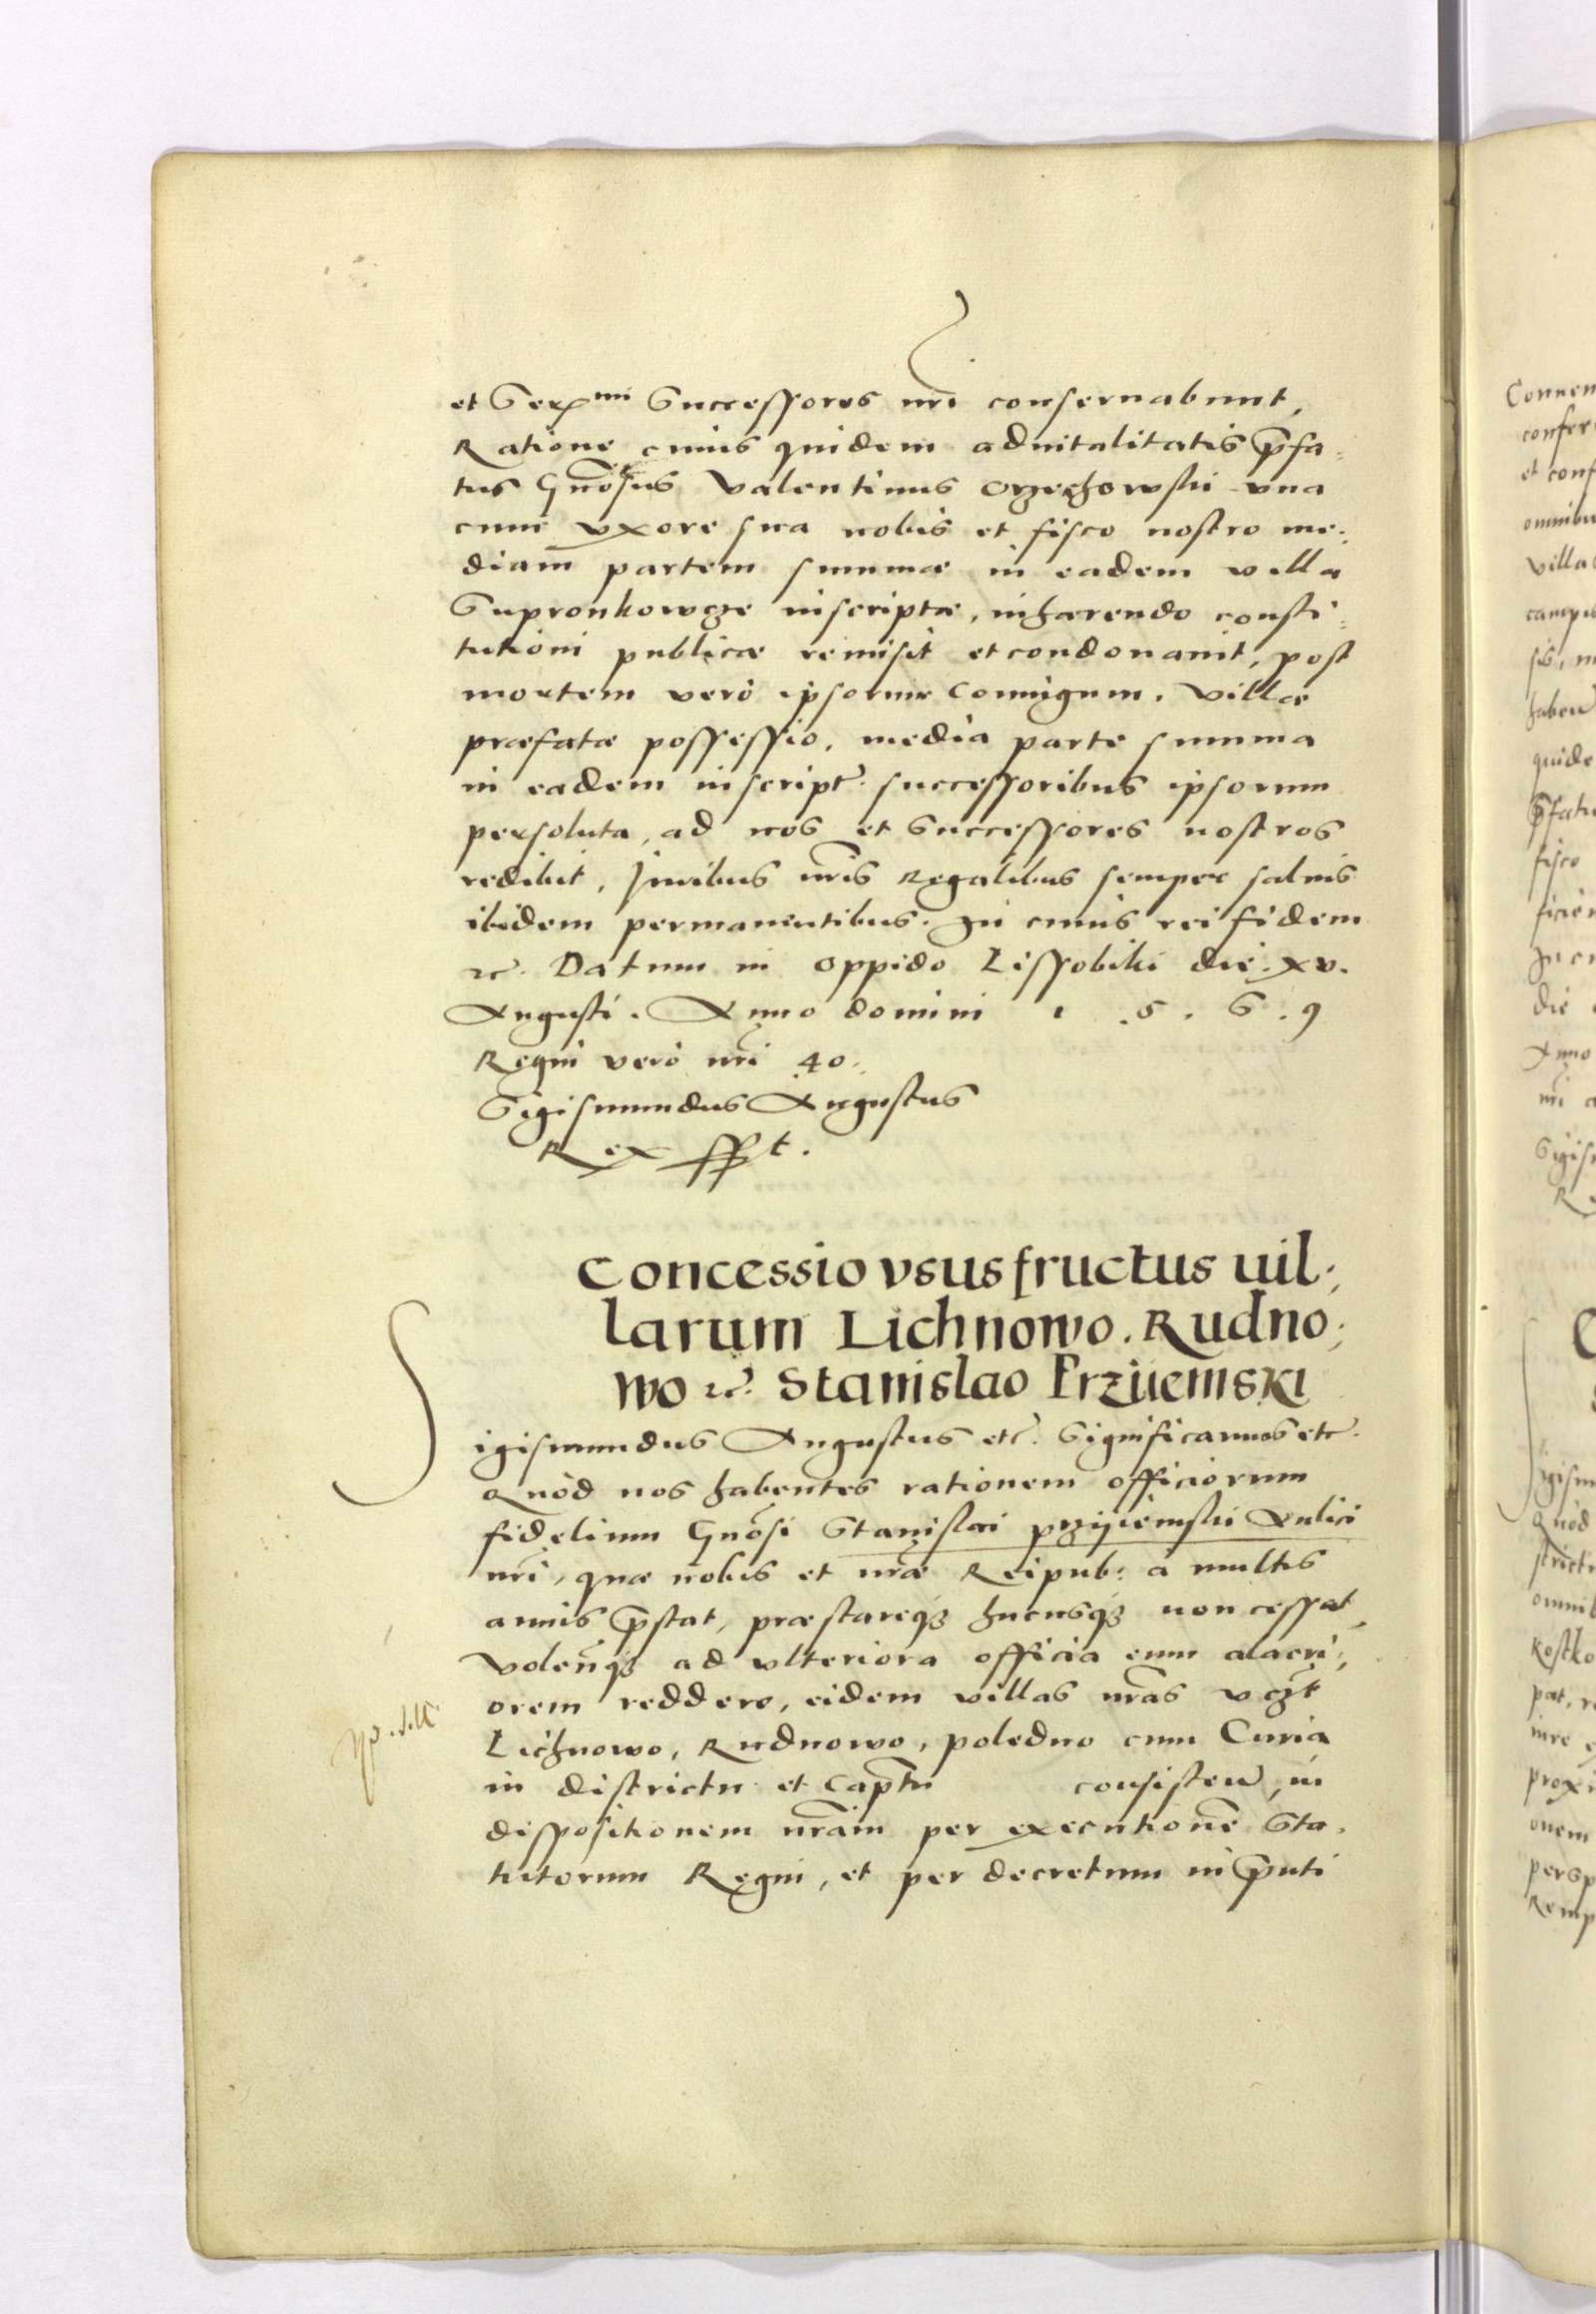 et Serᵐⁱ Successores nri conseruabunt,
Ratione cuius quidem aduitalitatis p̃fa=
tus Gnosus Valentinus Orzechowski vna
cum vxore sua nobis et fisco nostro me=
diam partem summæ in eadem villa
Supronkowcze inscriptæ, inhærendo consti=
tutioni publicæ remisit et condonauit, post
mortem verò ipsorum Coniugum. Villæ
præfatæ possessio, media parte summa
in eadem inscript. successoribus ipsorum
persoluta, ad nos et Successores nostros
redibit, Iuribus nris Regalibus semper saluis
ibidem permanentibus. In cuius rei fidem
etc. Datum in oppido Lissobiki die. xv.
Augusti. Anno domini 1 .5 . 6 . 9
Regni verò nri 40.
Sigismundus Augustus
Rex sspt.
Concessio vsus fructus uil=
larum Lichnowo. Rudno=
wo etc. Stanislao Przijiemski
Sigismundus Augustus etc. Significamus etc.
Quòd nos habentes rationem officiorum
fidelium Gnosi Stanislai Przijiemski Aulici
nri, quæ nobis et nræ Reipub: a multis
annis p̃stat, præstareq3 hucusq3 non cessat
Volenq3 ad vlteriora officia eum alacri=
orem reddere, eidem villas nras vczt
Lichnowo, Rudnowo, poledno cum Curia
in districtu et Captu consisten, in
dispositionem nram per executionẽ Sta=
tutorum Regni, et per decretum in p̃nti